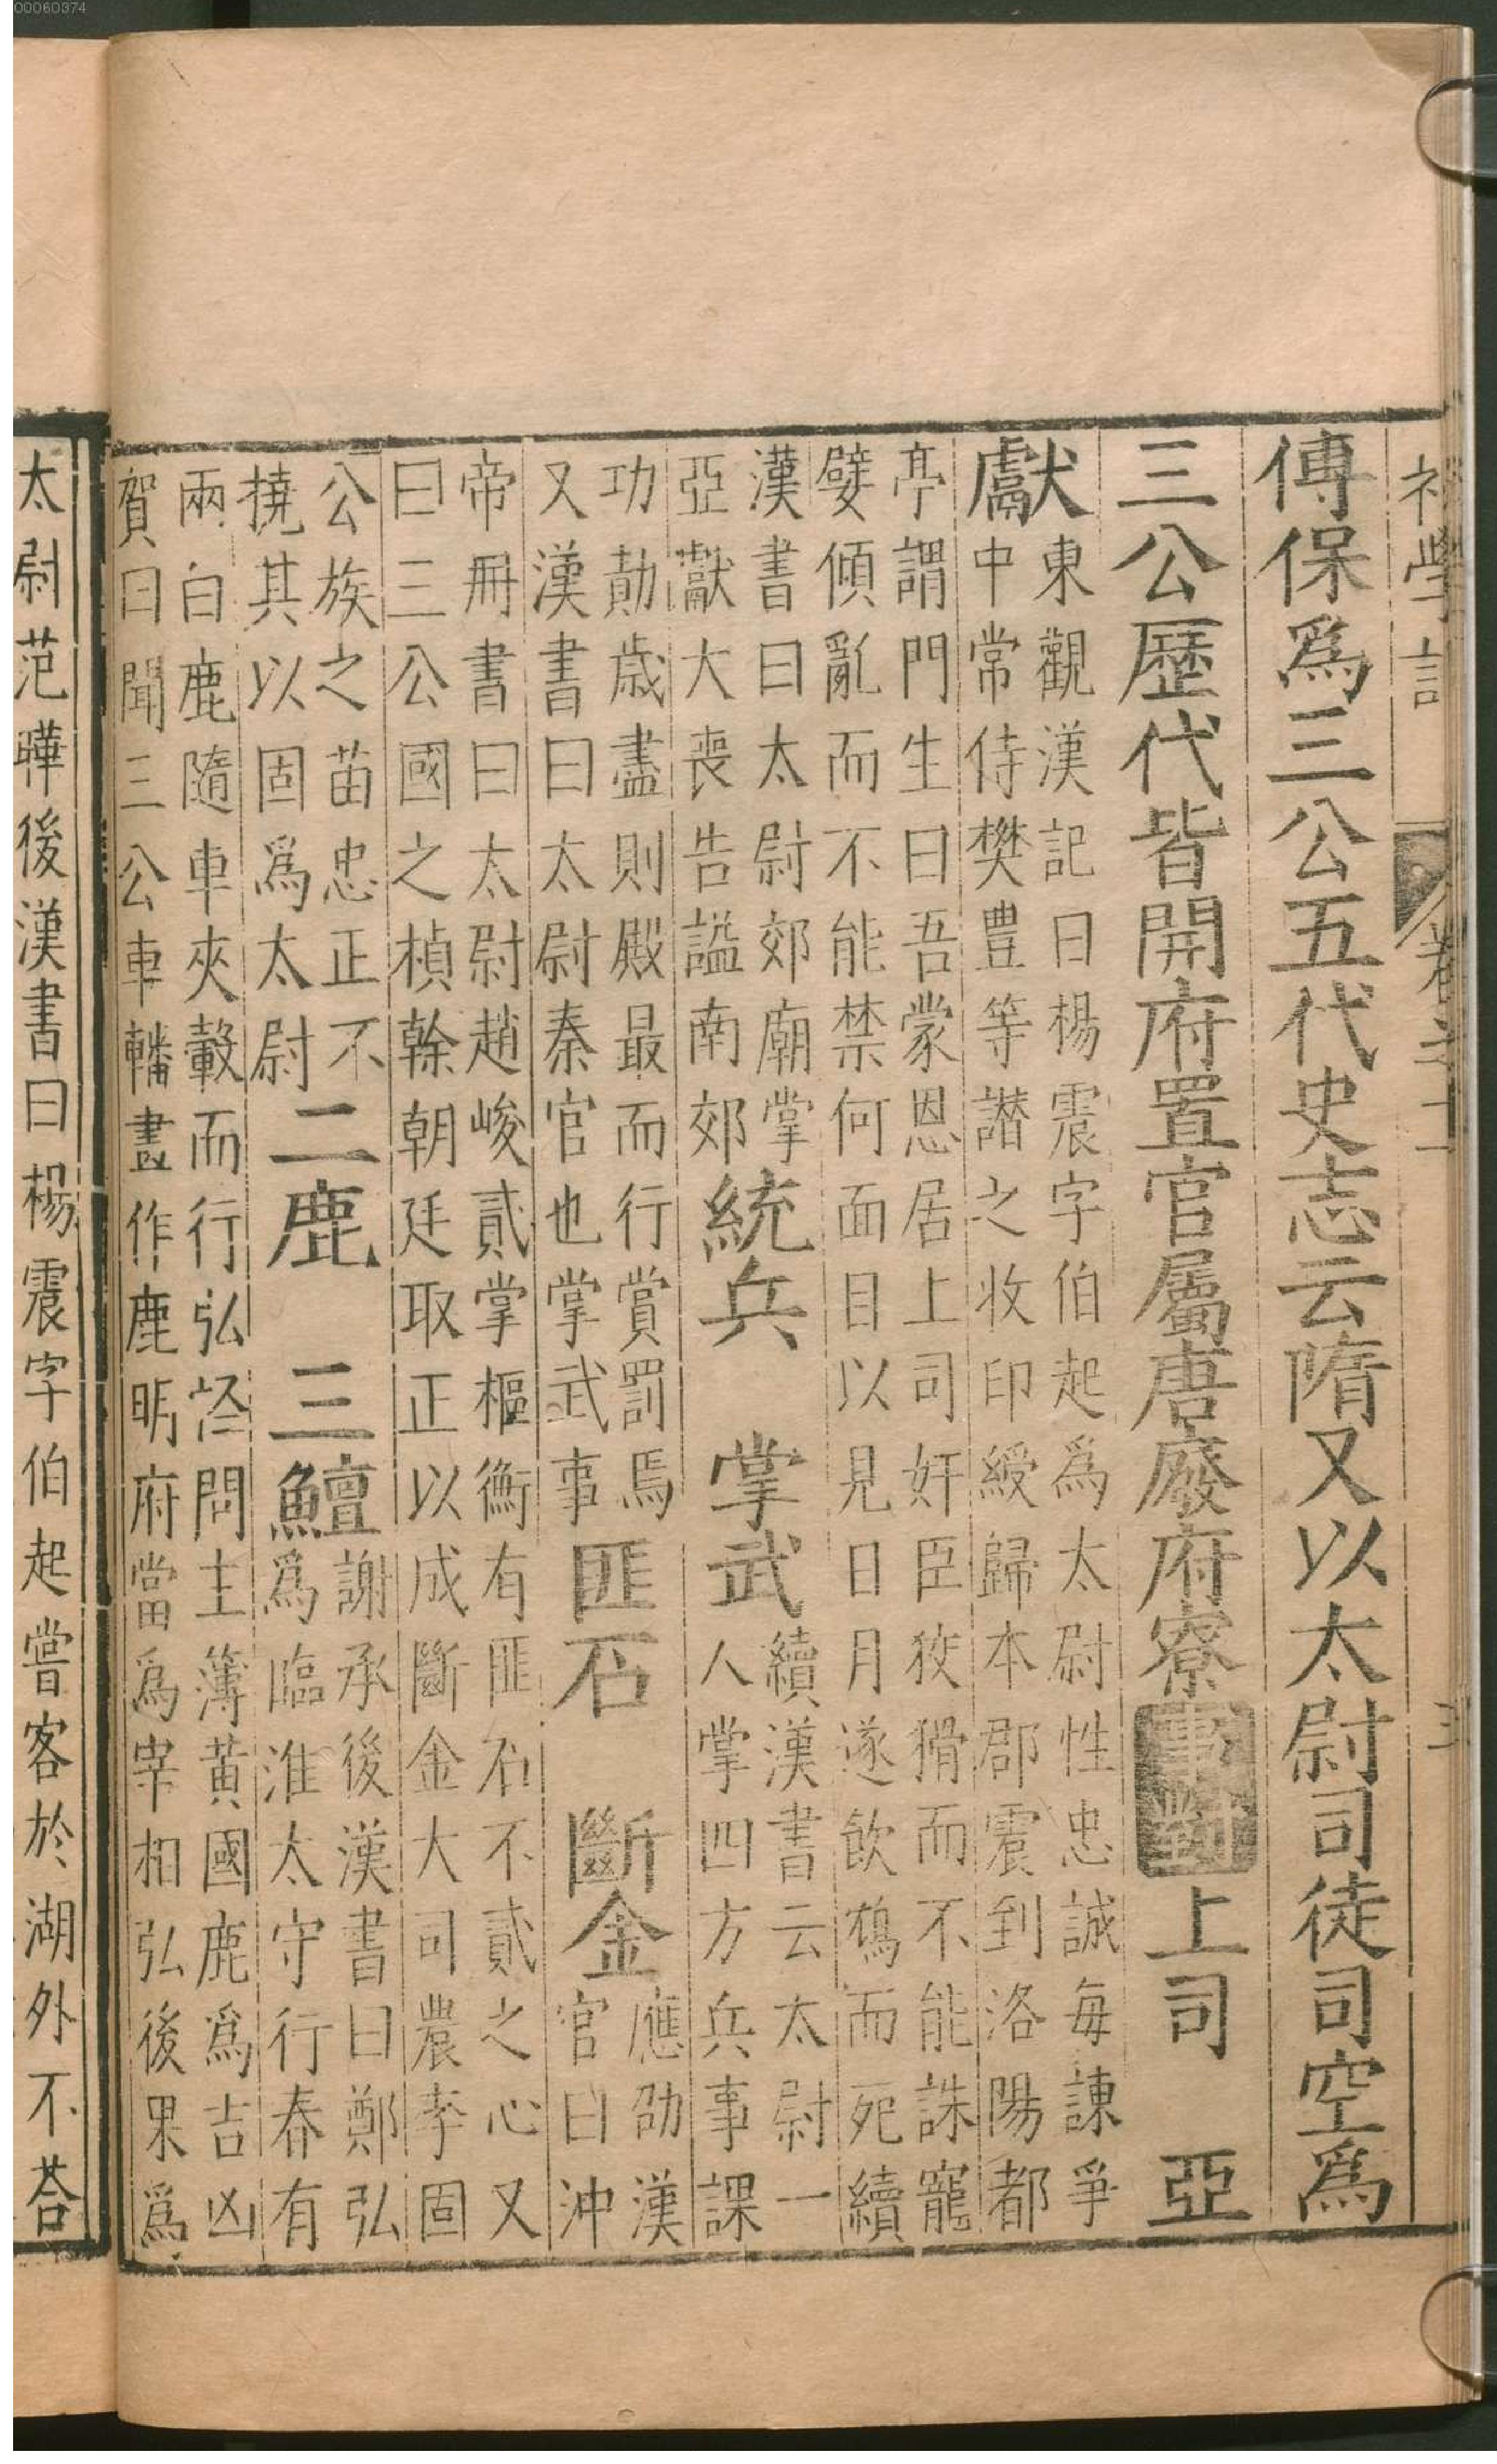 00060374
初學記 卷之十一 三
傳保爲三公五代史志云隋又以太尉司徒司空爲
三公歷代皆開府置官屬唐廢府寮事對上司 亞
獻
東觀漢記曰楊震字伯起爲太尉性忠誠每諫爭
中常侍樊豊等譖之收印綬歸本郡震到洛陽都
亭謂門生曰吾蒙恩居上司奸臣狡猾而不能誅寵
嬖傾亂而不能禁何面目以見日月遂飲鴆而死續
漢書曰太尉郊廟掌
亞獻大喪告謚南郊
統兵 掌武
續漢書云太尉一
人掌四方兵事課
功勣歲盡則殿最而行賞罰焉
又漢書曰太尉秦官也掌武事
匪石 斷金
應劭漢
官曰沖
帝冊書曰太尉趙峻貳掌樞衡有匪石不貳之心又
曰三公國之楨幹朝廷取正以成斷金大司農李固
公族之苗忠正不
撓其以固爲太尉
二鹿 三鱣
謝承後漢書曰鄭弘
爲臨淮太守行春有
兩白鹿隨車夾轂而行弘怪問主簿黃國鹿爲吉凶
賀曰聞三公車轓畫作鹿明府當爲宰相弘後果爲
太尉范曄後漢書曰楊震字伯起嘗客於湖外不荅